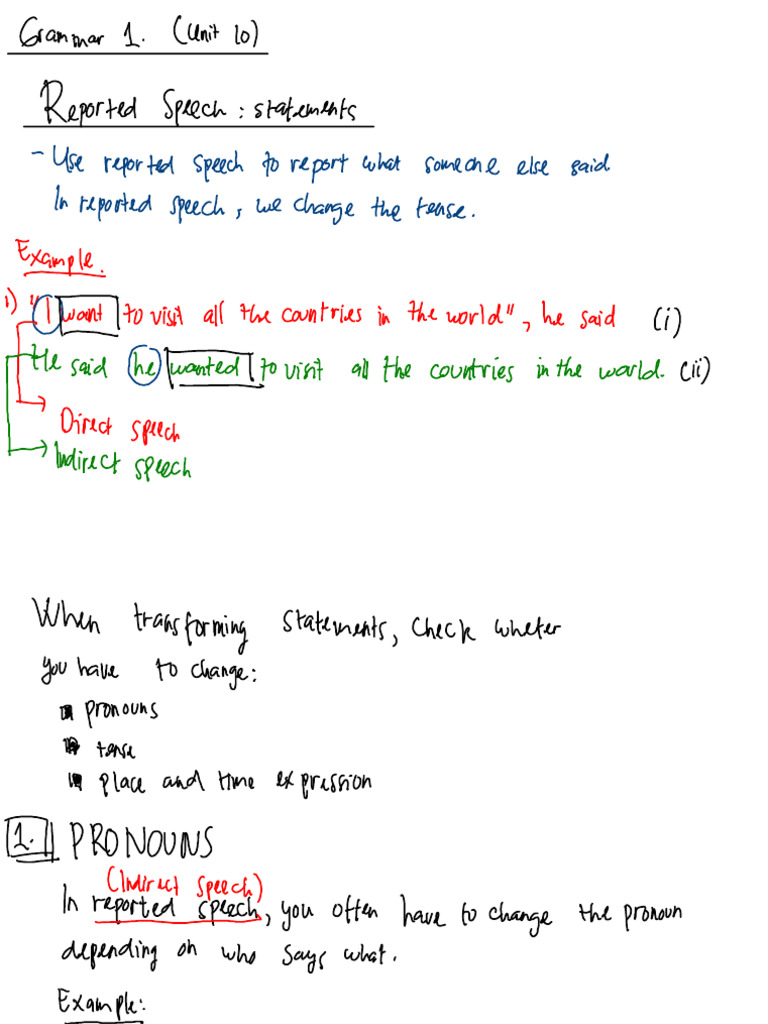 Grammar 1. (Unit 10)
Reported Speech: statements
- Use reported speech to report what someone else said
In reported speech, we change the tense.
Example.
i) "I want to visit all the countries in the world", he said (i)
He said he wanted to visit all the countries in the world. (ii)
Direct speech
Indirect speech
When transforming statements, check wheter
you have to change:
pronouns
tense
place and time expression
1. PRONOUNS
(Indirect Speech)
In reported speech, you often have to change the pronoun
depending on who says what.
Example: